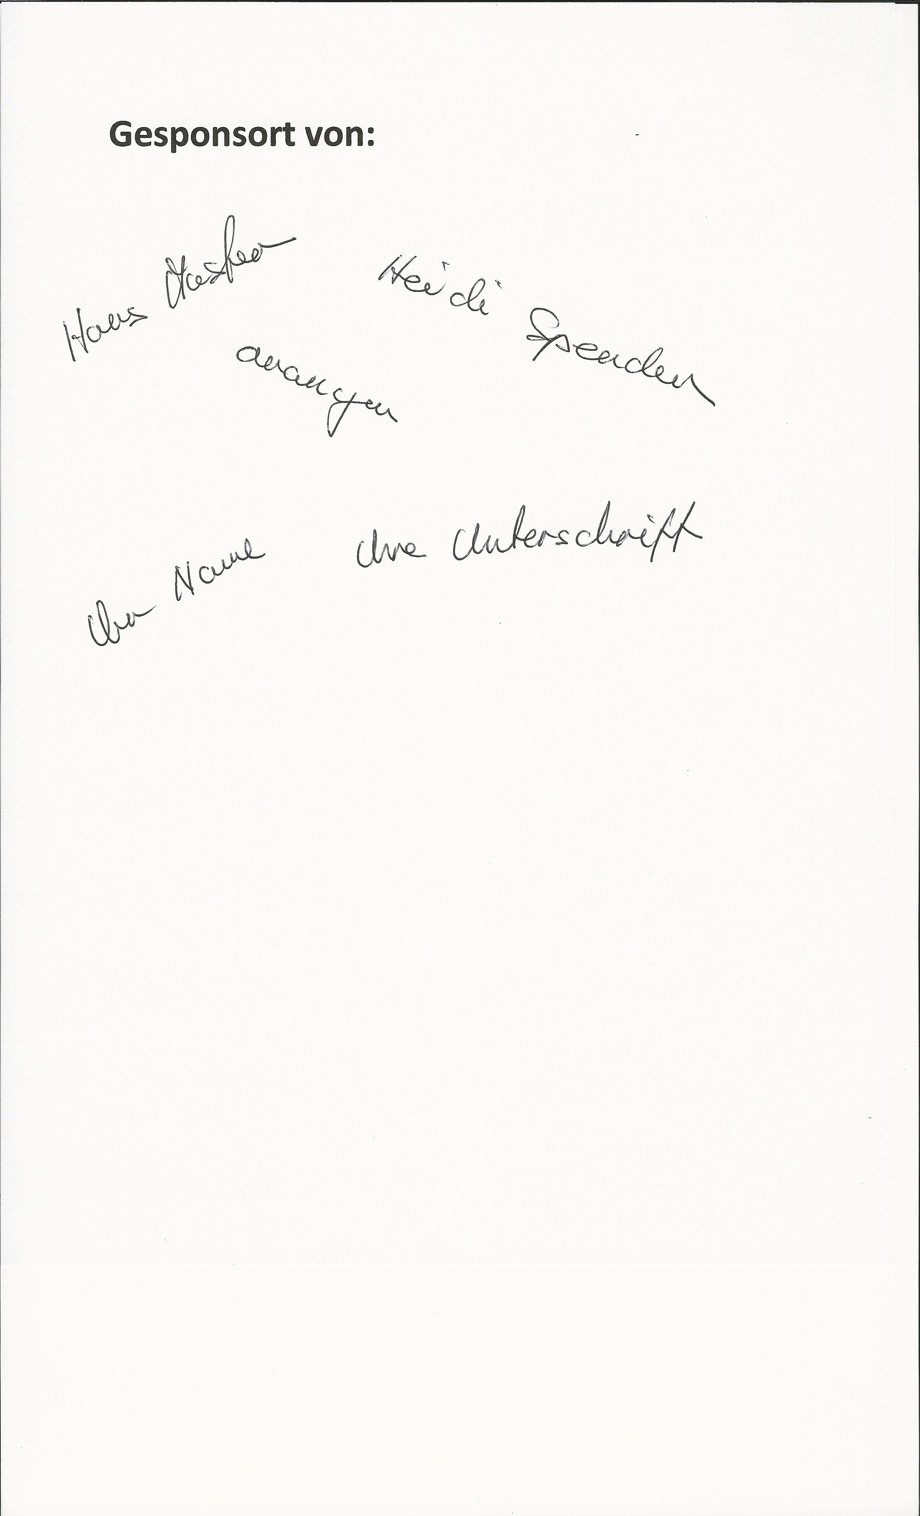 Gesponsort von:
Hans Muster
Heidi Spenden
Ihr Name
Ihre Unterschrift